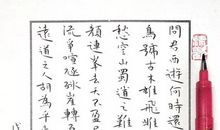 問君西遊何時還
鳥號古木雄飛雌
愁空山蜀道之難
顏連峯去天不盈
流爭喧豗砯崖轉
遠道之人胡為乎